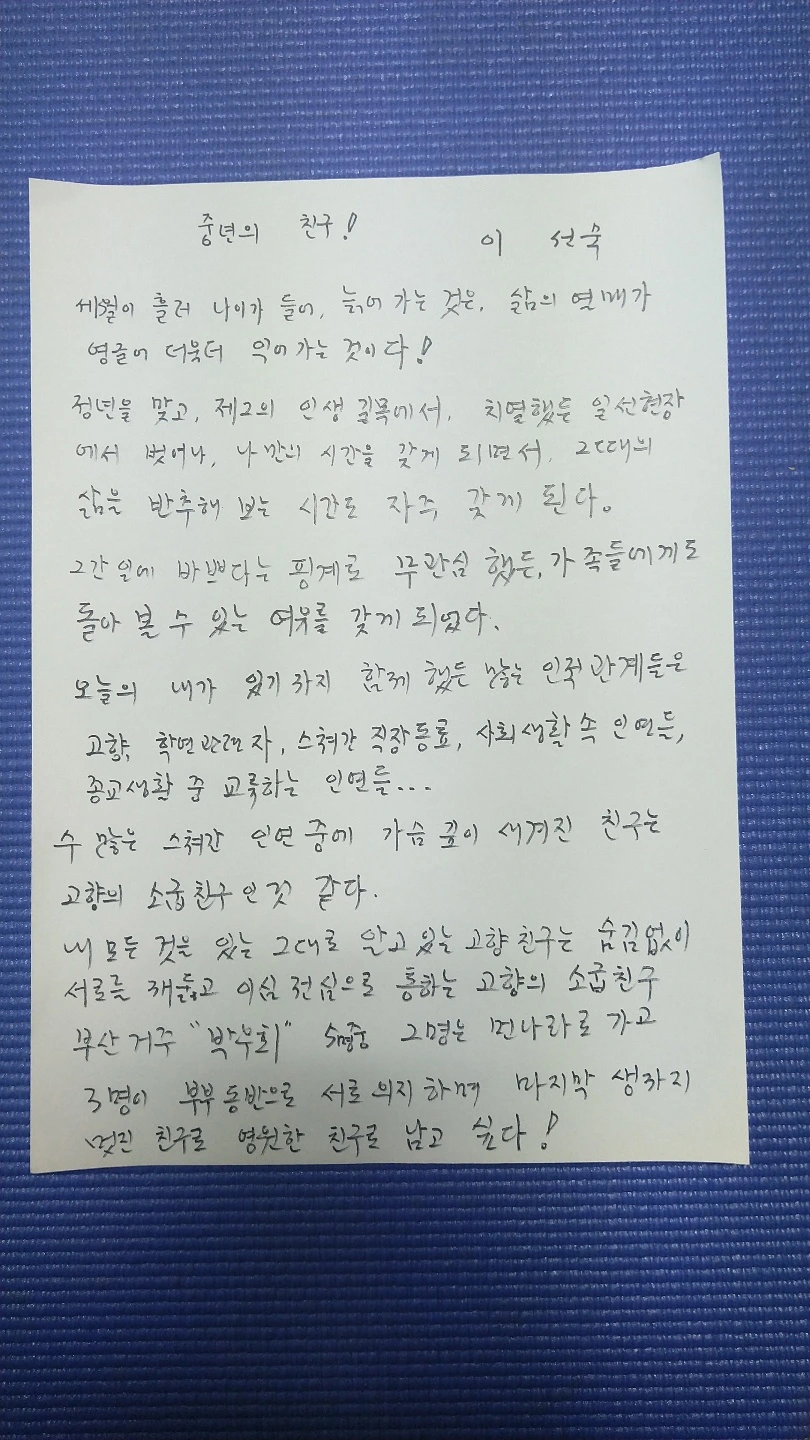 중년의 친구! 이 선숙
세월이 흘러 나이가 들어, 늙어 가는 것은, 삶의 열매가
영글어 더욱더 익어가는 것이다!
정년을 맞고, 제2의 인생 길목에서, 치열했든 일선현장
에서 벗어나, 나만의 시간을 갖게 되면서, 그대의
삶을 반추해 보는 시간도 자주 갖게 된다。
그간 일에 바쁘다는 핑계로 무관심 했든, 가족들에게도
돌아 볼 수 있는 여유를 갖게 되었다.
오늘의 내가 있기 까지 함께 했든 많은 인적관계들은
고향, 학연관련자, 스쳐간 직장동료, 사회생활 속 인연들,
종교생활 중 교류하는 인연들...
수 많은 스쳐간 인연 중에 가슴 깊이 새겨진 친구는
고향의 소굽친구인것 같다.
내 모든 것을 있는 그대로 알고 있는 고향친구는 숨김없이
서로를 이심 전심으로 통하는 고향의 소굽친구
부산거주 "박우회" 5명중 2명은 먼나라로 가고
3명이 부부동반으로 서로 의지하며 마지막 생까지
멋진 친구로 영원한 친구로 남고 싶다!